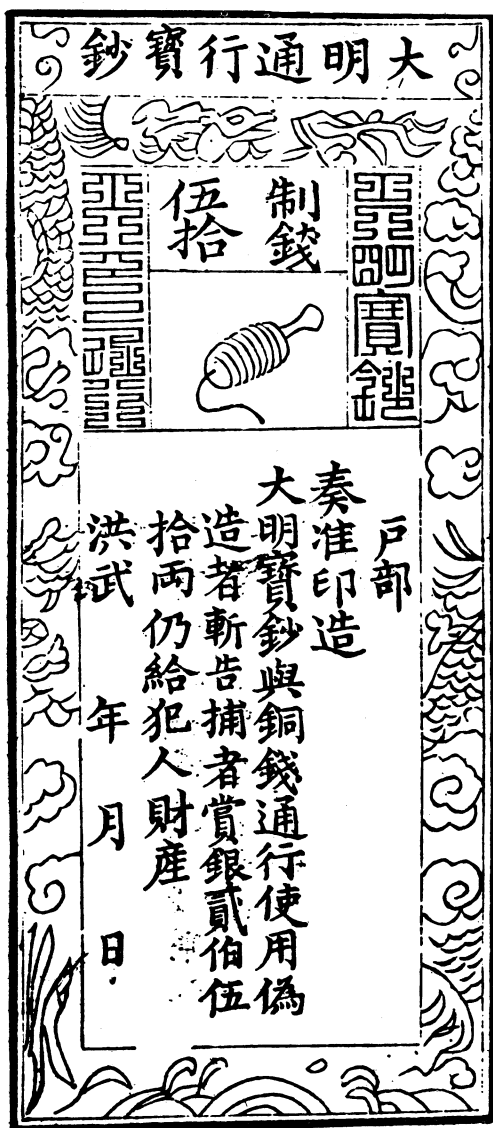 大明通行寶鈔
大明寶鈔
制錢
伍拾
戶部
奏准印造
大明寶鈔與銅錢通行使用偽
造者斬告捕者賞銀貳伯伍
拾兩仍給犯人財産
洪武 年 月 日